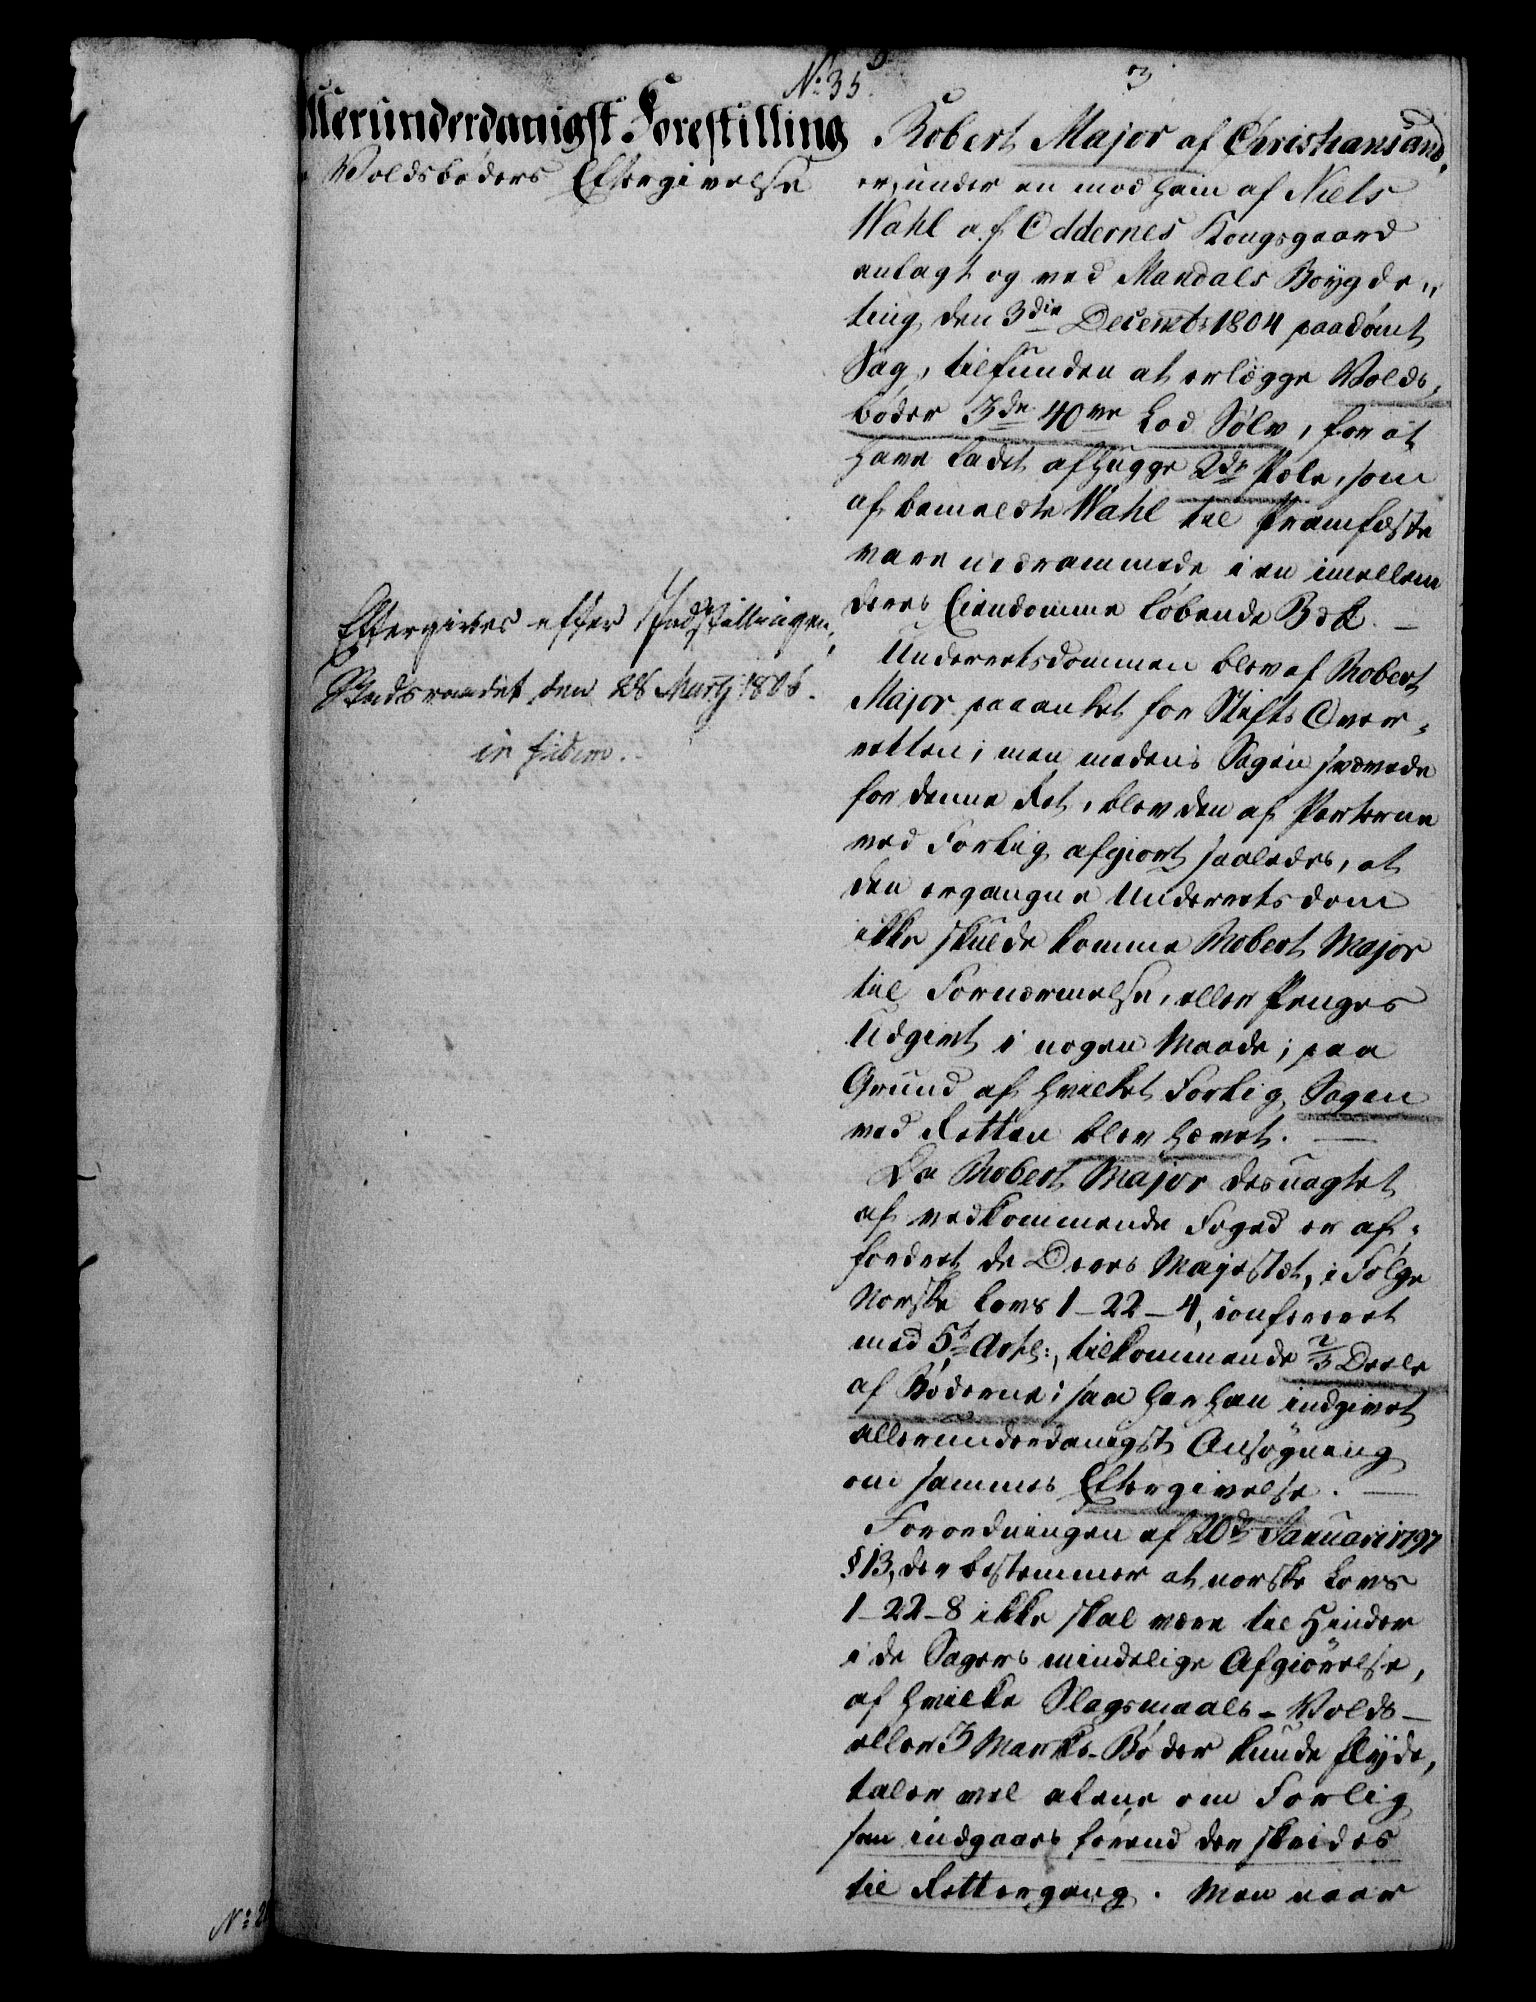 No: 35.
3
Allerunderdanigst Forestilling
Voldsbøders Eftergivelse
Eftergives efter Indstillingen,
Stadsraadet den 28 Martj 1806.
in fidem.
Robert Major af Christiansand,
er, under en mod ham af Niels
Wahl af Oddernes Kongsgaard
anlagt og ved Mandals Bøygde„
ting den 3die Decembr: 1804 paadømt
Sag, tilfunden at erlægge Volds„
bøder 3de 40ve Lod Sølv, for at
have ladet afhugge 2de Pæle, som
af bemeldte Wahl til Pramfæste
vare nedrammede i en imellem
deres Eiendomme løbende Bæk. —
Underretsdommen blev af Robert
Major paaanket for Stifts Over„
retten; men medens Sagen svævede
for denne Ret, blev den af Parterne
ved Forlig afgiort saaledes, at
den ergangne Underrets dom
ikke skulde komme Robert Major
til Fornærmelse, eller Penges
Udgivt i nogen Maade; paa
Grund af hvilket Forlig Sagen
ved Retten blev hævet. —
Da Robert Major desuagtet
af vedkommende Foged er af„
fordret de Deres Majestæt, i Følge
Norske Lovs 1-22-4, confereret
med 5t Artl:, tilkommende 2/3 Deele
af Bøderne; saa har han indgivet
allerunderdanigst Ansøgning
om sammes Eftergivelse. —
Forordningen af 20de Januarii 1797
§ 13, der bestemmer at norske Lovs
1-22-8 ikke skal være til Hinder
i de Sagers mindelige Afgiørelse,
af hvilke Slagsmaals- Volds-
eller 3 Marks-Bøder kunde flyde,
taler vel alene om Forlig
som indgaaes førend der skrides
til Rettergang. Men naar
No: 2